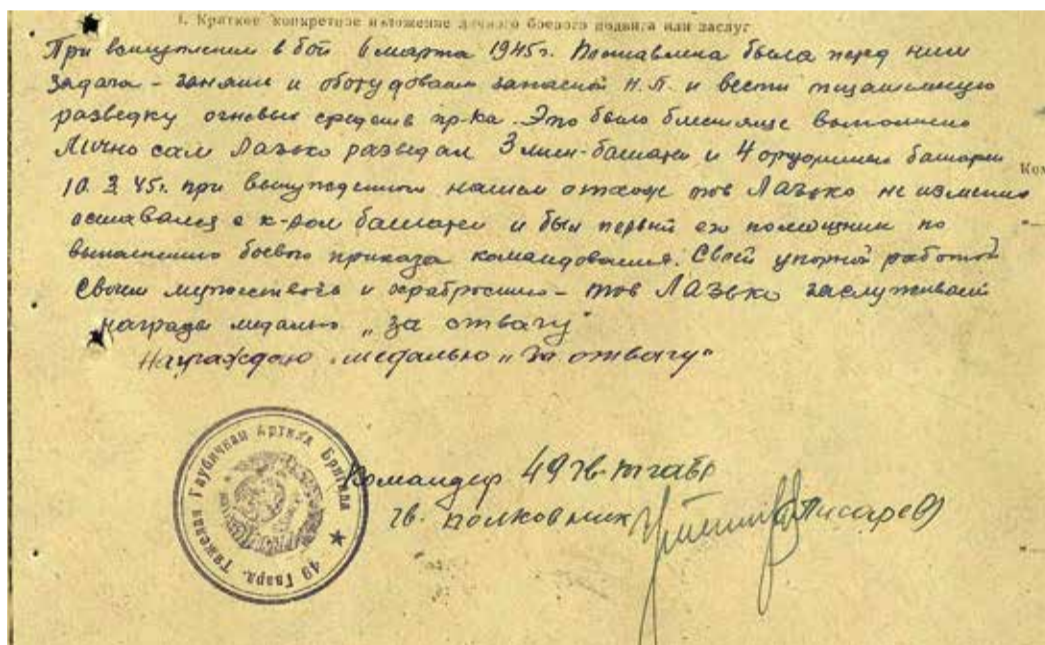 1. Краткое конкретное изложение личного боевого подвига или заслуг
При вступлении в бой 6 марта 1945г. Поставлена была перед ним
задача – занять и оборудовать запасной Н.П. и вести тщательную
разведку огневых средств пр-ка. Это было блестяще выполнено
Лично сам Лазько разведал 3 мин-батареи и 4 орудийных батареи
10.3.45г. при вынужденном нашем отходе тов Лазько не изменно
оставался с к-ром батареи и был первый его помощник по
выполнению боевого приказа командования. Своей упорной работой
Своим мужеством и храбростью – тов Лазько заслуживает
награды медалью „За отвагу“
Награждаю медалью „За отвагу“
Командир 49 гв. тгабр
гв. полковник Писарев
49 Гвард. Тяжелая Гаубичная Артил. Бригада
Ком